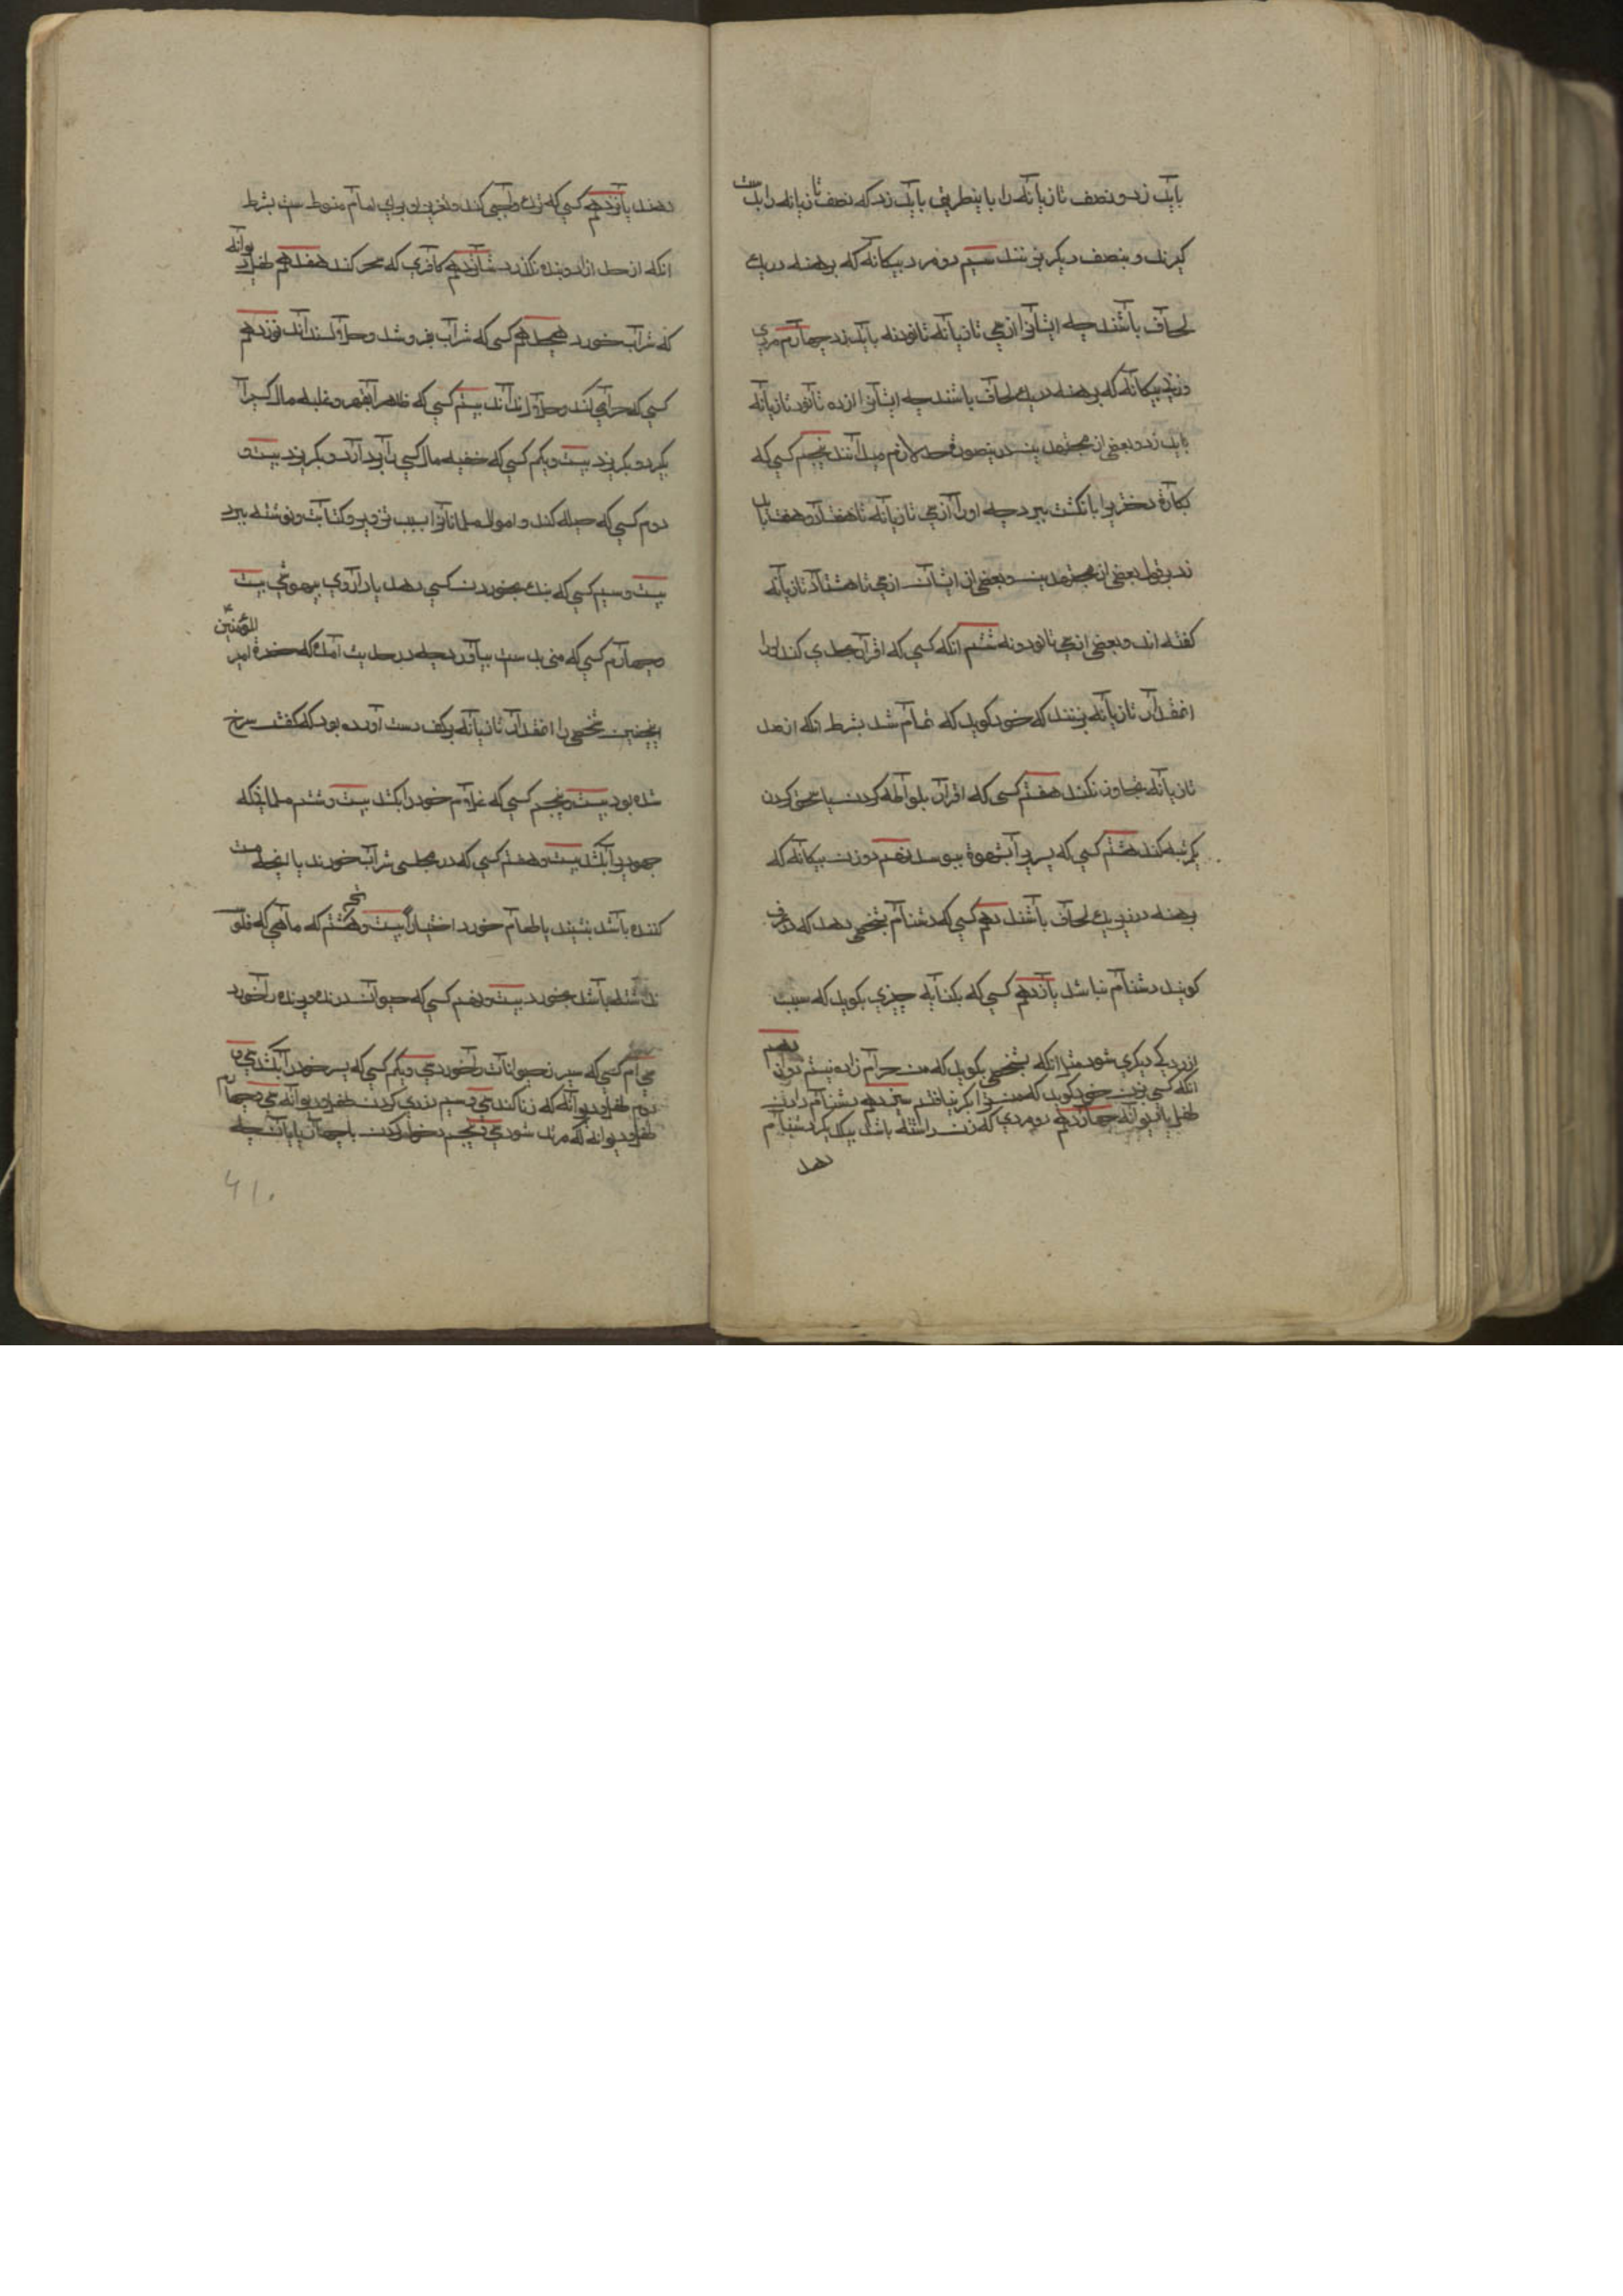 باید زد و نصف تازیانه را باینطریق باید زد که نصف تازیانه را بدست
گیرند و بنصف دیگر بزنند سیم دو مرد بیکانه که برهنه در یک
لحاف باشند چه ایشانرا از سی تازیانه تا نود و نه باید زد چهارم مردی
و زن بیکانه که برهنه در یک لحاف باشند چه ایشانرا از ده تا نود تازیانه
باید زد و بعضی از مجتهدین درینصورة حد لازم میدانند پنجم کسی که
بکارة دختریرا بانکشت ببرد چه اورا از سی تازیانه تا هفتاد و هفت باید
زد بر قول بعضی از مجتهدین و بعضی از ایشان از سی تا هشتاد تازیانه
کفته اند و بعضی از سی تا نود و نه ششم انکه کسی که اقرار بحدی کند اورا
انمقدار تازیانه بزنند که خود کوید که تمام شد بشرط انکه از صد
تازیانه تجاوز نکند هفتم کسی که اقرار بلواطه کردن یا سحق کردن
یکمرتبه کند هشتم کسی که پسریرا بشهوة ببوسد نهم دو زن بیکانه که
برهنه در زیر یک لحاف باشند دهم کسی که دشنام بشخصی دهد که در عرف
کویند دشنام نباشد یازدهم کسی که بکنایه چیزی بکوید که سبب
ازردکی دیکری شود مثل انکه بشخصی بکوید که من حرام زاده نیستم دوازدهم
انکه کسی بزن خود کوید که من ترا بکر نیافتم سیزدهم دشنام دادن
طفل یا دیوانه چهاردهم دو مردی که زن داشته باشند بیکدیکر دشنام
دهد
دهند پانزدهم کسی که ترک واجبی کند و تعزیر او برای امام منوط ست بشرط
انکه از حد ازاد و بنده نکذرد شانزدهم کافری که سحر کند هفدهم طفل و دیوانه
که شراب خورد هیجدهم کسی که شراب بفروشد و حلال نداند نوزدهم
کسی که حرامی کند و حلال نداند بیستم کسی که ظاهرا بقهر و غلبه مال کسیرا
بکیرد و بکریزد بیست و یکم کسی که خفیه مال کسی را بردارد و بکریزد بیست و
دوم کسی که حیله کند و اموال مسلمانانرا بسبب تزویر و کتابت و نوشته ببرد
بیست و سیم کسی که بنک بخوردن کسی دهد یا داروی بیهوشی بیست
و چهارم کسی که منی بدست بیاورد چه در حدیث امده که حضرة امیر المؤمنین
اینچنین شخصی را انمقدار تازیانه بر کف دست او زده بود که کفش سرخ
شده بود بیست و پنجم کسی که غلام خود را بکشد بیست و ششم مسلمانی که
جهودیرا بکشد بیست و هفتم کسی که در مجلسی شراب خورند یا انچه مست
کننده باشد بنشیند یا طعام خورد اختیارا بیست و هشتم که ماهی که فلوس
نداشته باشد بخورد بیست و نهم کسی که حیوان درنده و پرنده را خورد
سی ام کسی که سپرز حیوانات را خورد سی و یکم کسی که پسر خود را بکشد سی و
دوم طفل و دیوانه که زنا کند سی و سیم دزدی کردن طفل و دیوانه سی و چهارم
طفل و دیوانه که مرتد شود سی و پنجم دخول کردن با چهارپایان چه
۶۱۰